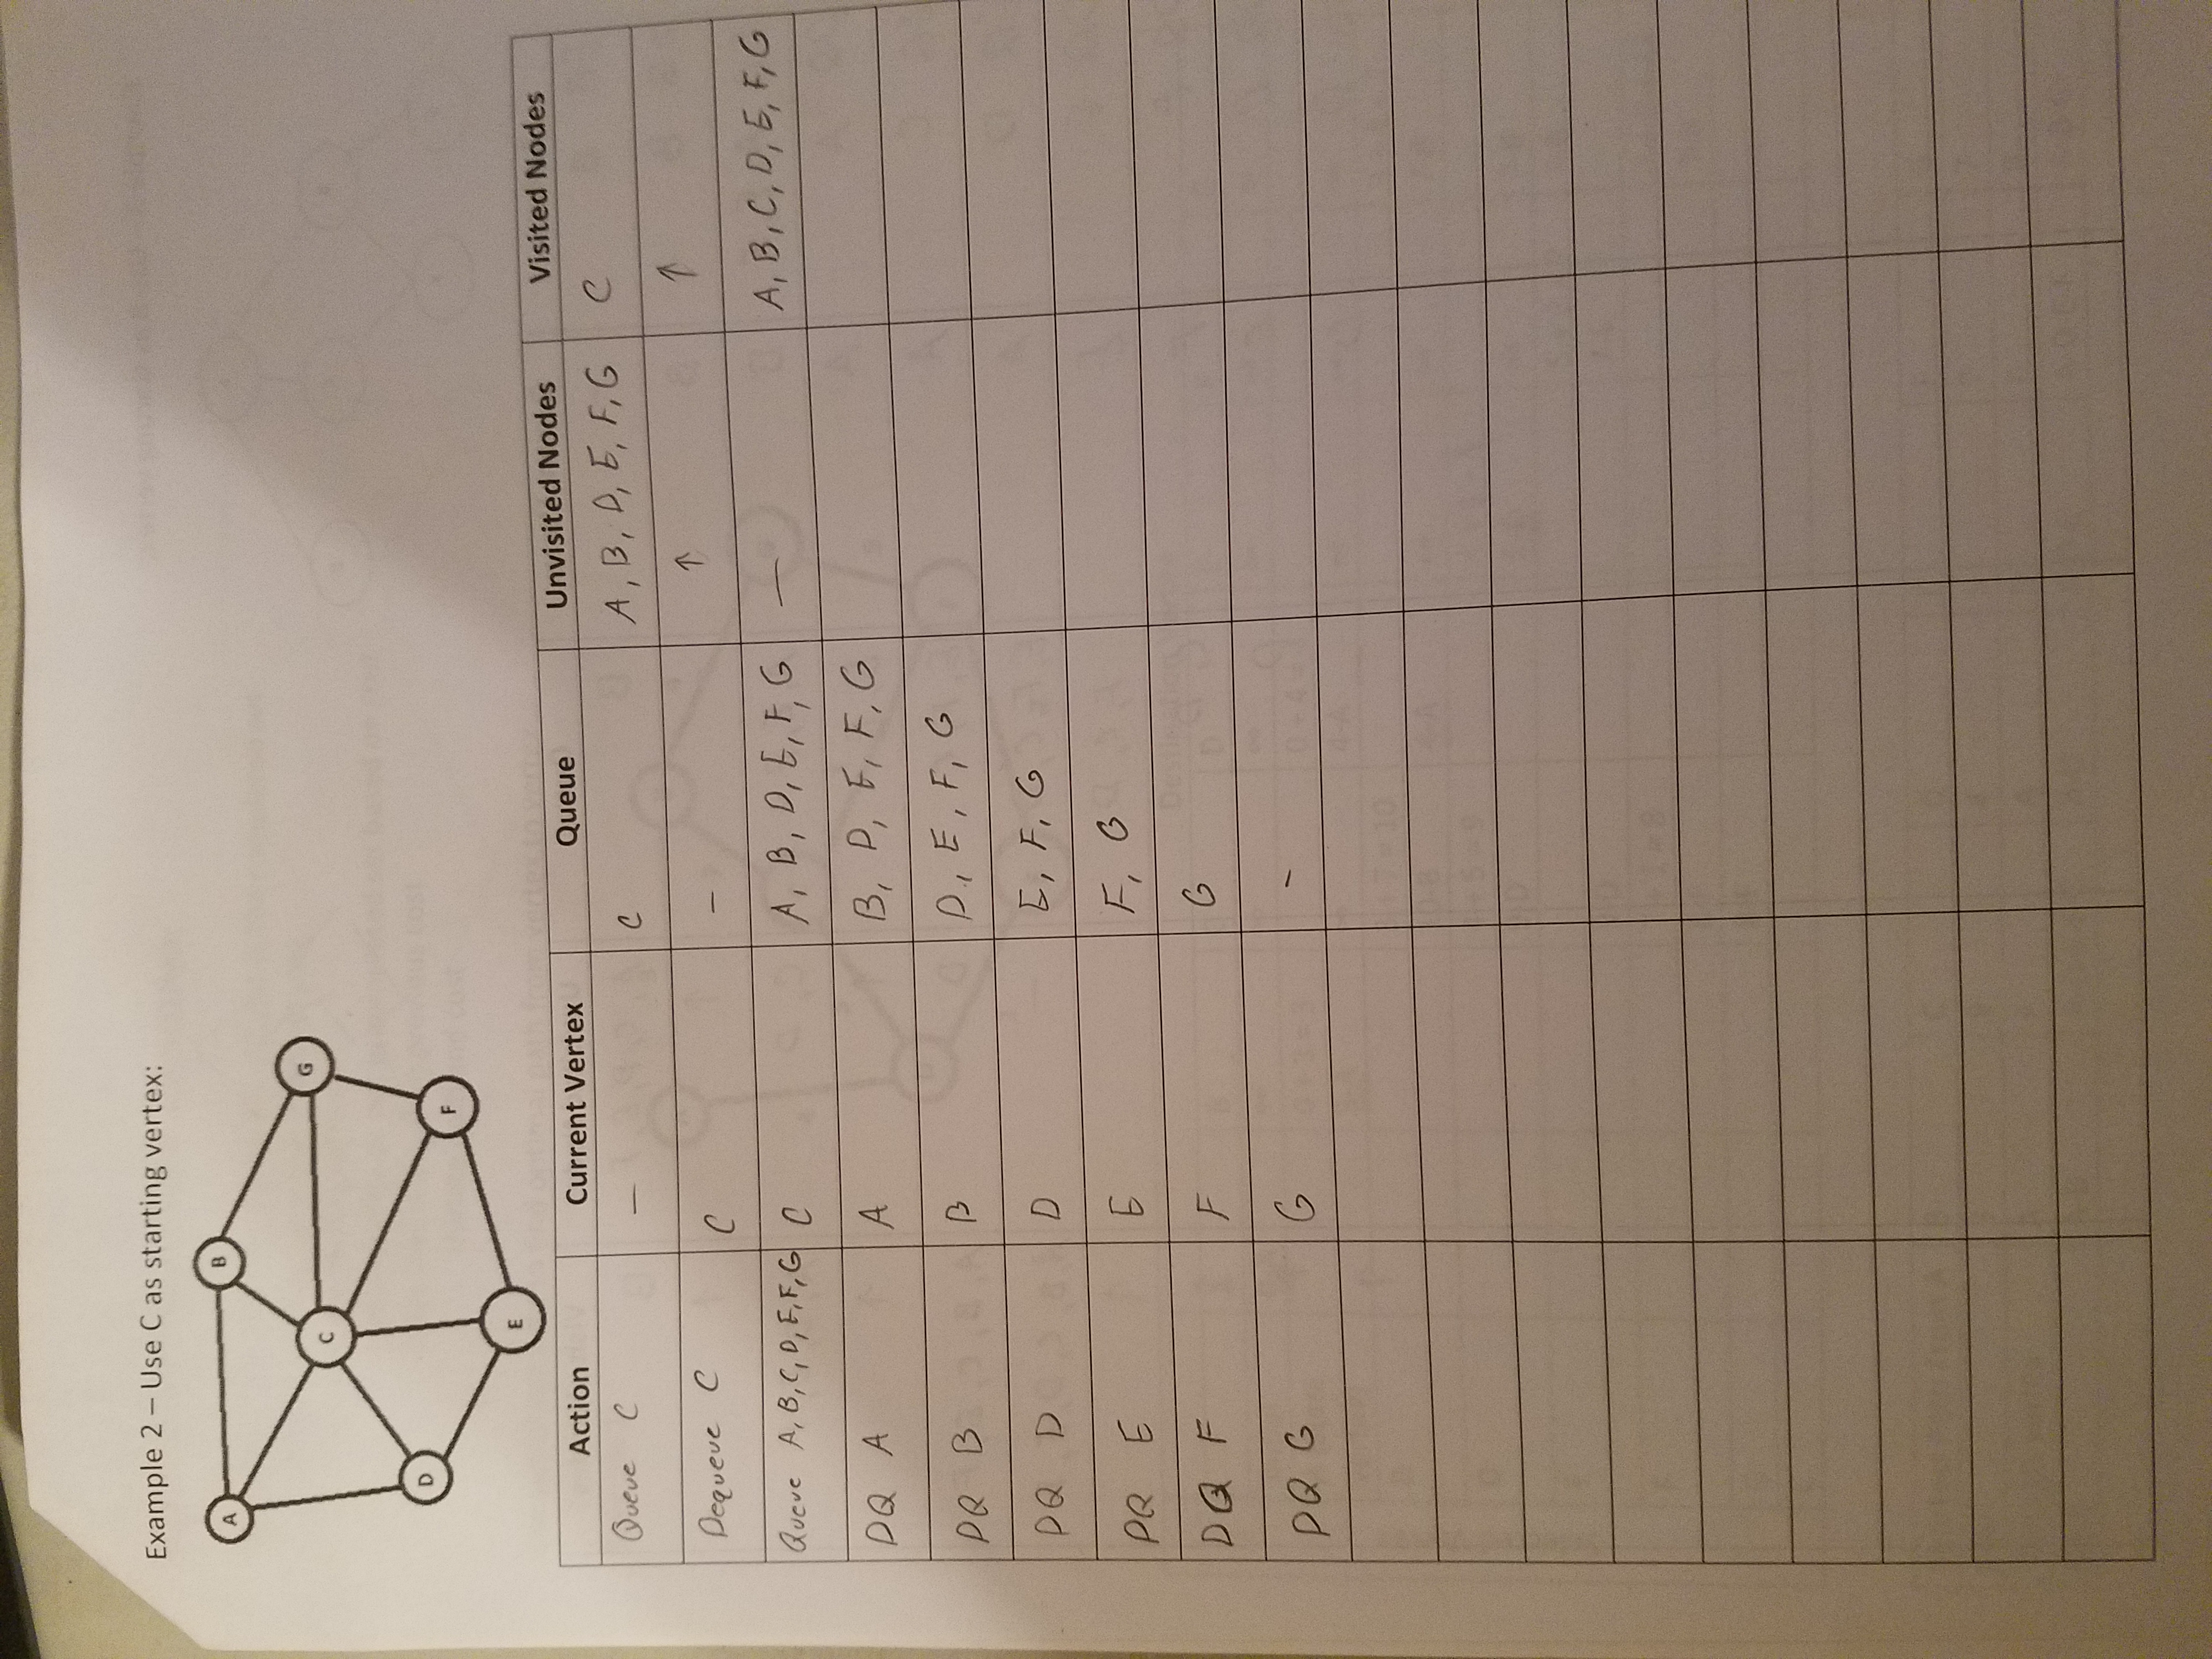 Example 2 – Use C as starting vertex:
A
B
G
C
D
F
E
Action Current Vertex Queue Unvisited Nodes Visited Nodes
Queue C — C A, B, D, E, F, G C
Dequeue C C — ↑ ↑
Queue A, B, C, D, E, F, G C A, B, D, E, F, G — A, B, C, D, E, F, G
DQ A A B, D, E, F, G
DQ B B D, E, F, G
DQ D D E, F, G
DQ E E F, G
DQ F F G
DQ G G -